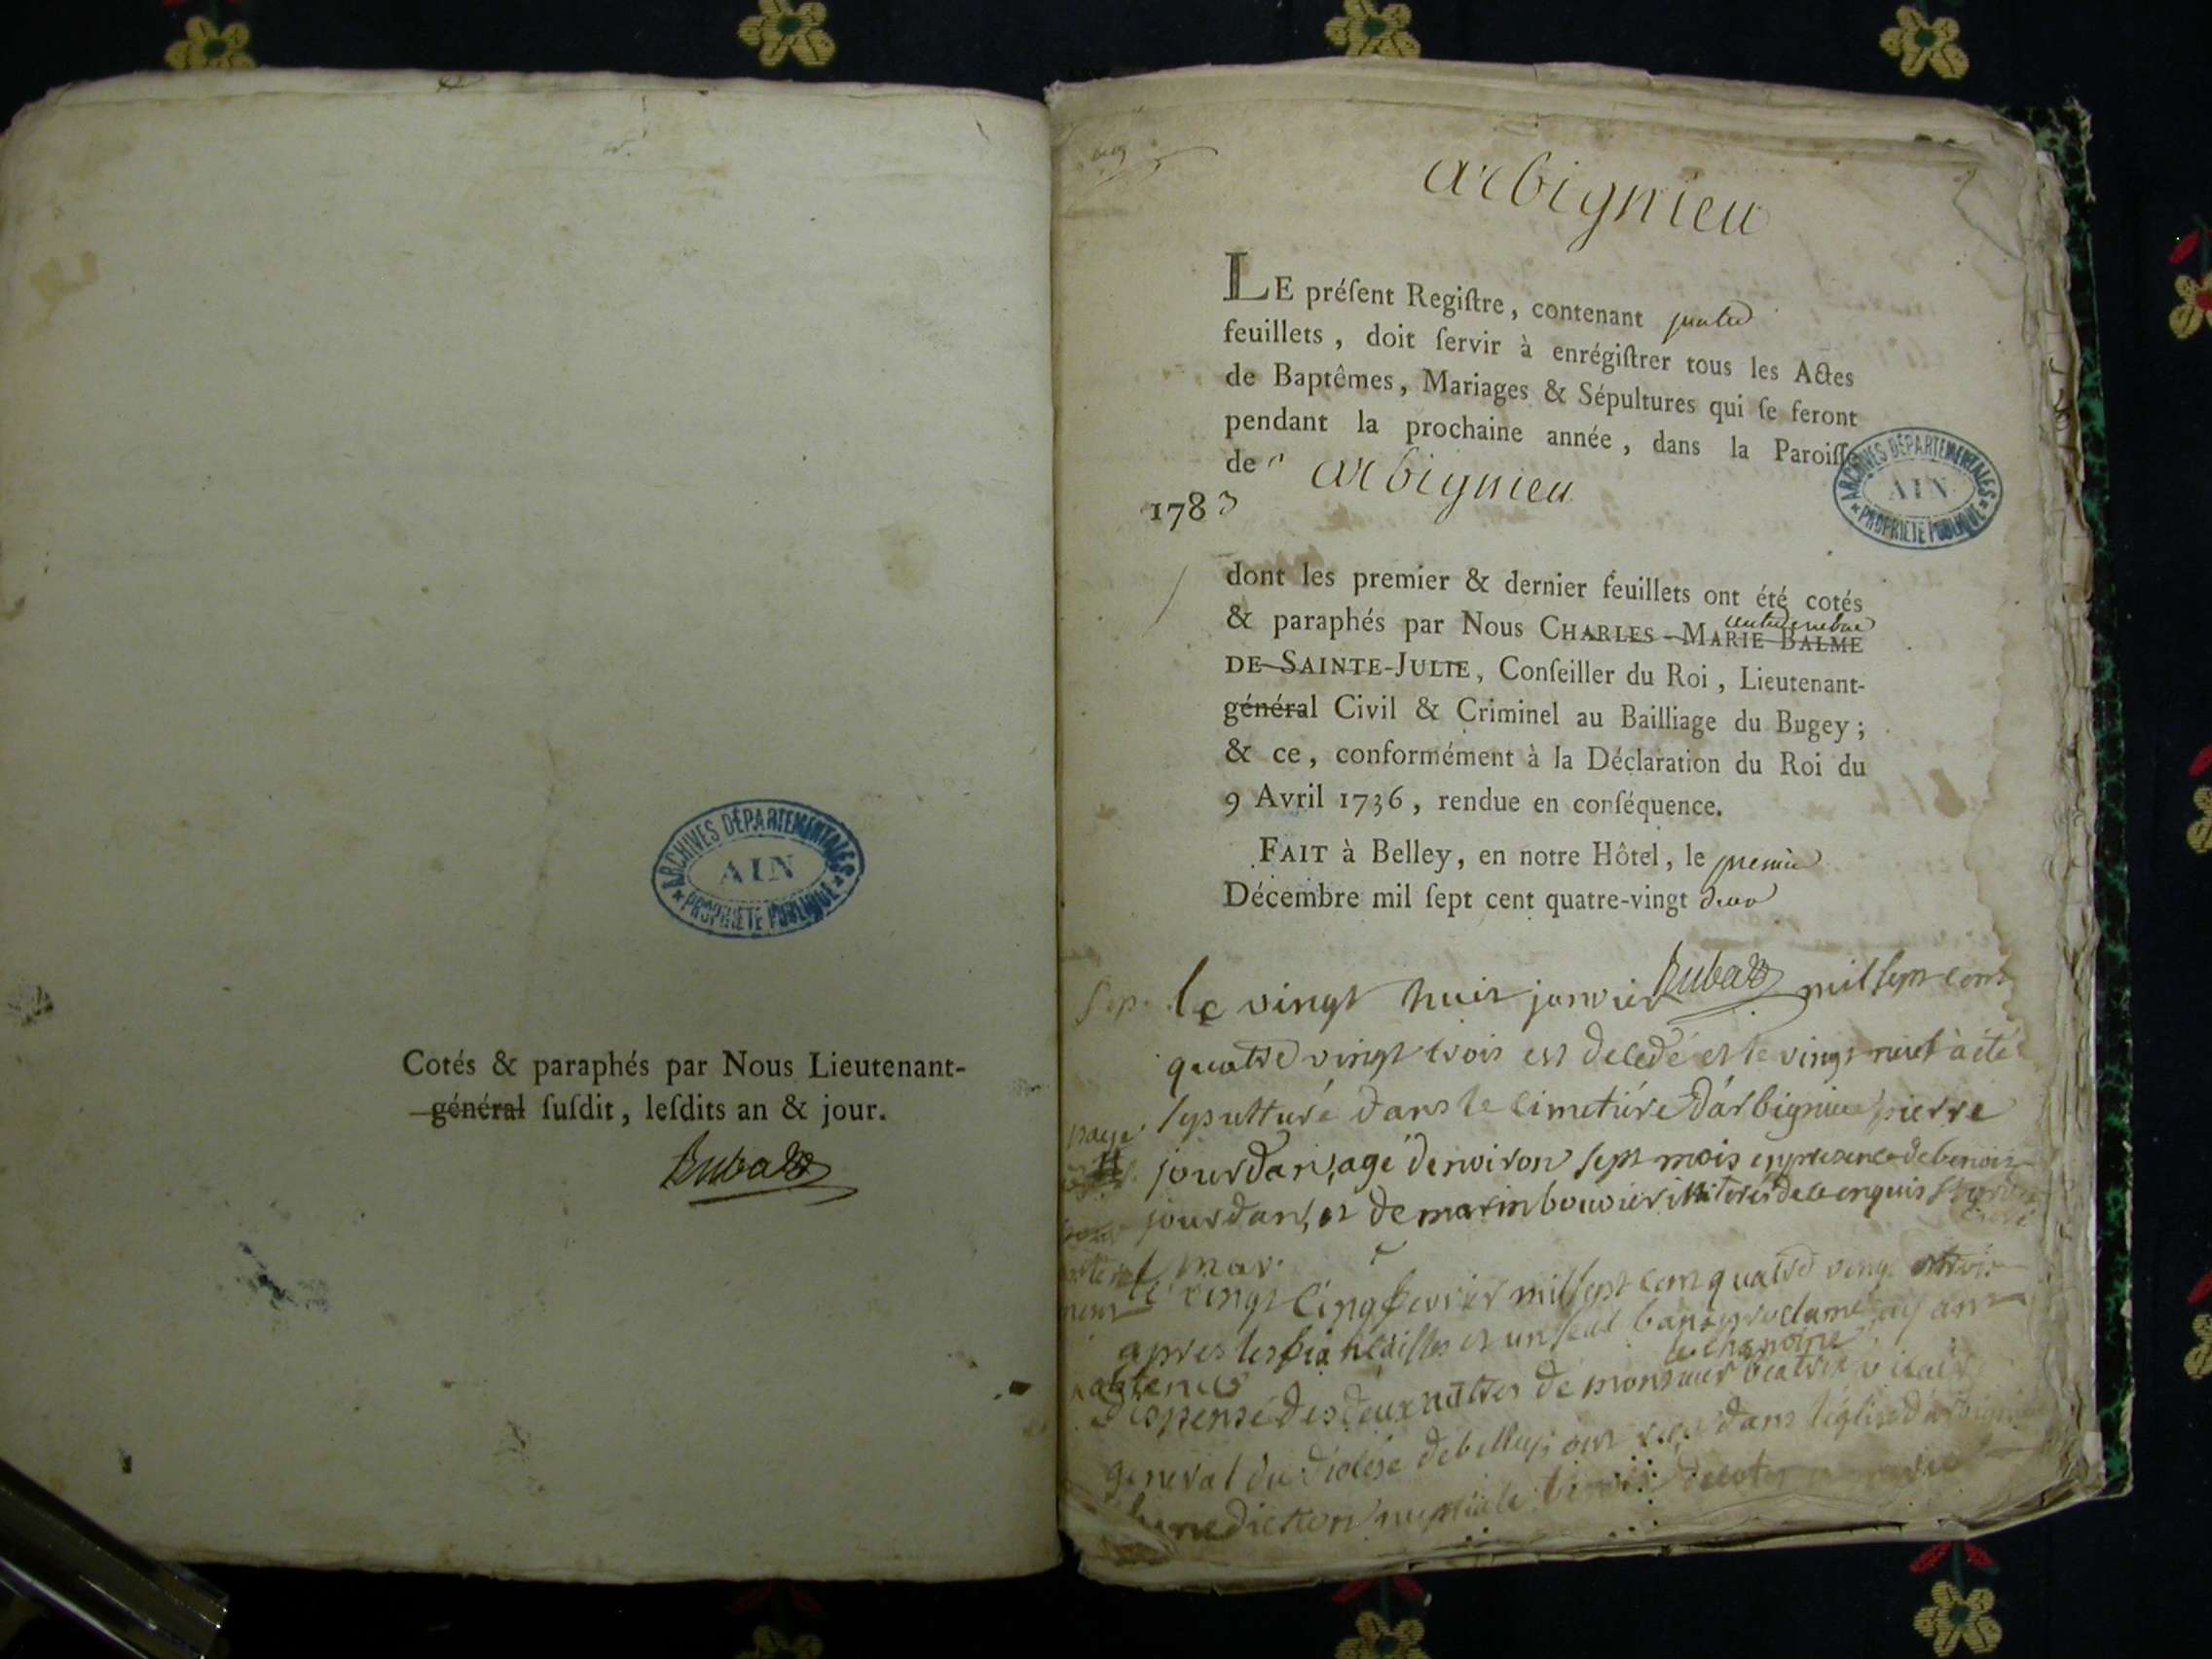 ARCHIVES DÉPARTEMENTALES
AIN
PROPRIÉTÉ PUBLIQUE
Cotés & paraphés par Nous Lieutenant-
général ſuſdit, leſdits an & jour.
arbignieu
LE préſent Regiſtre, contenant quatre
feuillets, doit ſervir à enrégiſtrer tous les Actes
de Baptêmes, Mariages & Sépultures qui ſe feront
pendant la prochaine année, dans la Paroiſſe
de arbignieu
1783
ARCHIVES DÉPARTEMENTALES
AIN
PROPRIÉTÉ PUBLIQUE
dont les premier & dernier feuillets ont été cotés
& paraphés par Nous CHARLES-MARIE BALME
DE SAINTE-JULIE, Conſeiller du Roi, Lieutenant-
général Civil & Criminel au Bailliage du Bugey;
& ce, conformément à la Déclaration du Roi du
9 Avril 1736, rendue en conſéquence.
FAIT à Belley, en notre Hôtel, le premier
Décembre mil ſept cent quatre-vingt deux
Sep. le vingt huit janvier mil sept cent
quatre vingt trois est decedé et le vingt neuf à été
sepulturé dans le cimetiére d'arbignieu pierre
jourdan, agé d'environ sept mois en presence de benoit
jourdan, et de marin bouvier illiterés de ce enquis
mar.
le vingt cinq fevrier mil sept cent quatre vingt trois
apres les fiancailles et un seul ban proclamé ayant
obtenus le chanoine
dispense des deux autres de monsieur vicaire
general du diocése de belley, ont reçu dans l'église d'arbignieu
benediction nuptiale